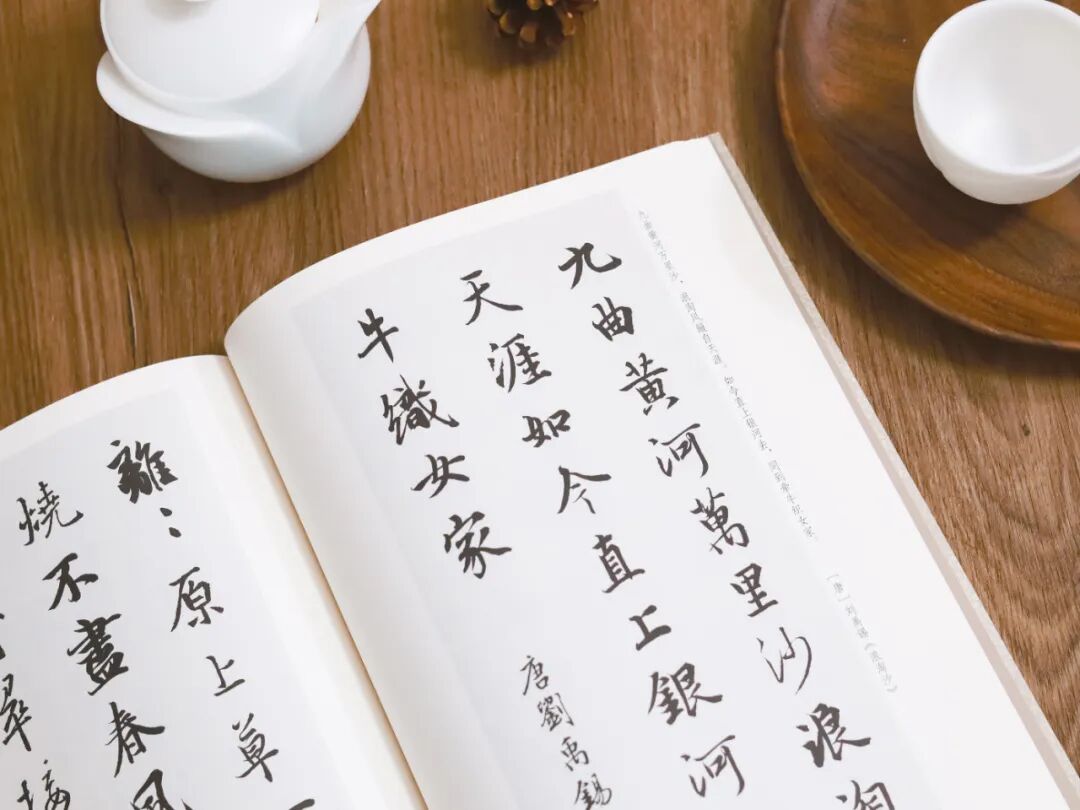 九曲黄河万里沙，浪淘风簸自天涯。如今直上银河去，同到牵牛织女家。
[唐] 刘禹锡《浪淘沙》
九曲黃河萬里沙浪淘
天涯如今直上銀河
牛織女家
唐劉禹錫
離〻原上草一
燒不盡春風
翠接